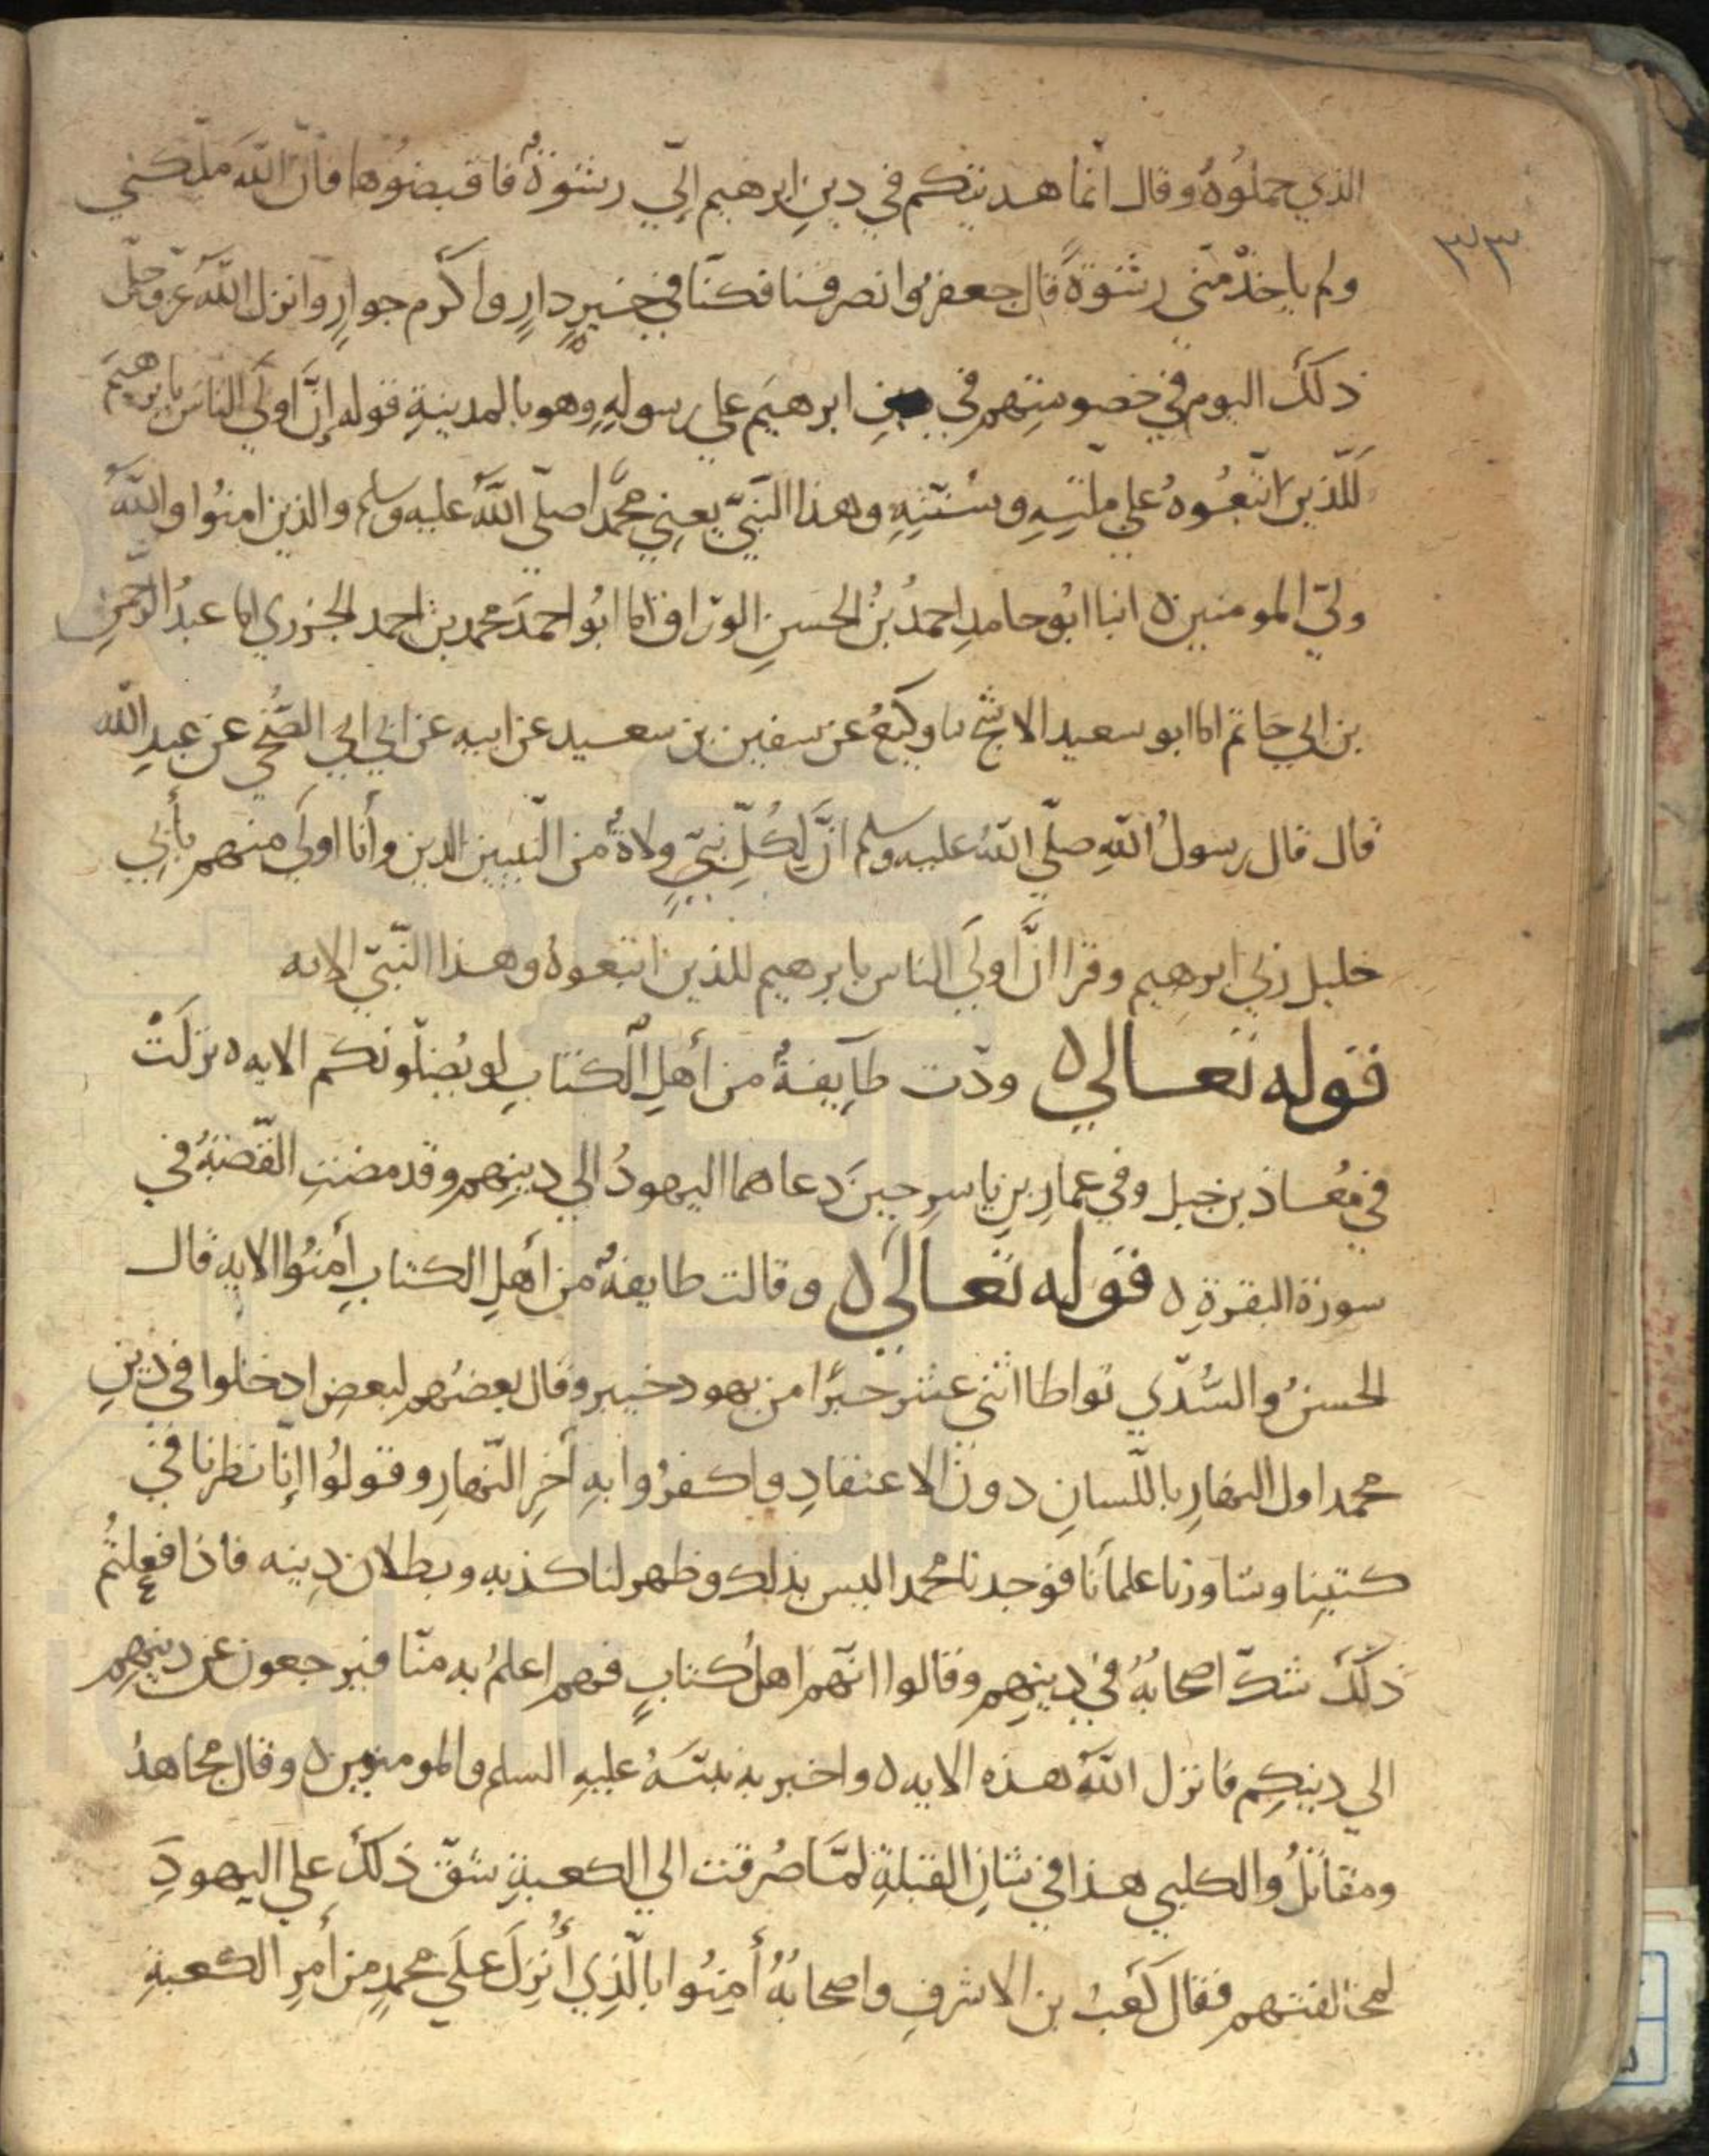 ٣٣
الذي حملُوهُ وقال انّما هديتكم في دينِ ابرهيم اليّ رشوةٌ فاقبضُوها فانّ اللّهَ ملّكني
ولم ياخذْ منّي رشوةً قال جعفرٌ وانصرفنا فكنّا في خيرِ دارٍ واكرم جوارٍ وانزل اللّهُ عزّ وجلّ
ذلكَ اليوم في خصومتِهم في دينِ ابرهيمَ علي رسولِهِ وهو بالمدينةِ قوله إنّ اَولَي الناسِ بابرهيمَ
للّذينَ اتّبعُوهُ علي ملّتِهِ وسُنّتِهِ وهذا النّبيّ يعني محمّدا صلّي اللّهُ عليه وسلم والذين امنُوا واللّهُ
وليّ المومنين ٥ انبا ابُو حامدٍ احمدُ بنُ الحسنِ الورّاق انا ابُو احمدَ محمد بن احمد الجزري انا عبدُ الرّحمنِ
بن ابي حاتم انا ابو سعيد الاشج نا وكيعٌ عن سفين بن سعيد عن ابيه عن ابي الضُّحي عن عبدِ اللّه
قال قال رسولُ اللّهِ صلّي اللّهُ عليه وسلم انّ لِكُلّ نبيّ ولاةً من النّبيين الدين وأنا اولَي منهم بأبي
خليل ربي ابرهيم وقرا انّ اَولَي الناس بابرهيم للذين اتّبعوهُ وهذا النّبيّ الايه
قوله تعالي ٥ ودّت طآيفةٌ من أهلِ الكتابِ لو يُضلّونكم الايه ٥ نزلَتْ
في مُعاذ بن جبل وفي عمارِ بنِ ياسرٍ حينَ دعاهما اليهودُ الي دينِهم وقد مضتِ القّصّةُ في
سورة البقرةِ ٥ قوله تعالَي ٥ وقالت طايفةٌ من أهلِ الكتابِ أمنُوا الايه قال
الحسنُ والسُّدّي تواطا اثني عشر حبرًا من يهود خيبر وقال بعضُهم لبعضٍ ادخلوا في دينِ
محمد اول النهارِ باللّسانِ دونَ الاعتقادِ واكفرُوا بهِ آخرِ النّهارِ وقولُوا إنّا نظرنا في
كتبِنا وشاورنا علمآنا فوجدنا محمدا ليس بذلك وظهر لنا كذبه وبطلان دِينه فاذا فعلتُم
ذلكَ شكّ اصحابُهُ في دينِهِم وقالوا انّهم اهلُ كتابٍ فهم اعلمُ به منّا فيرجعون عن دينهِم
الي دينكم فانزل اللّهُ هذه الايه ٥ واخبر به نبيّهُ عليهِ السلم والمومنين ٥ وقال مجاهدُ
ومقاتلُ والكلبي هذا في شانِ القبلةِ لمّا صُرفت الي الكعبةِ شقّ ذلكَ علي اليهودِ
لمخالفتهم فقال كعبُ بن الاشرفِ واصحابُهُ أمِنُوا بالّذِي أُنزِلَ علَي محمدٍ من أمرِ الكعبةِ